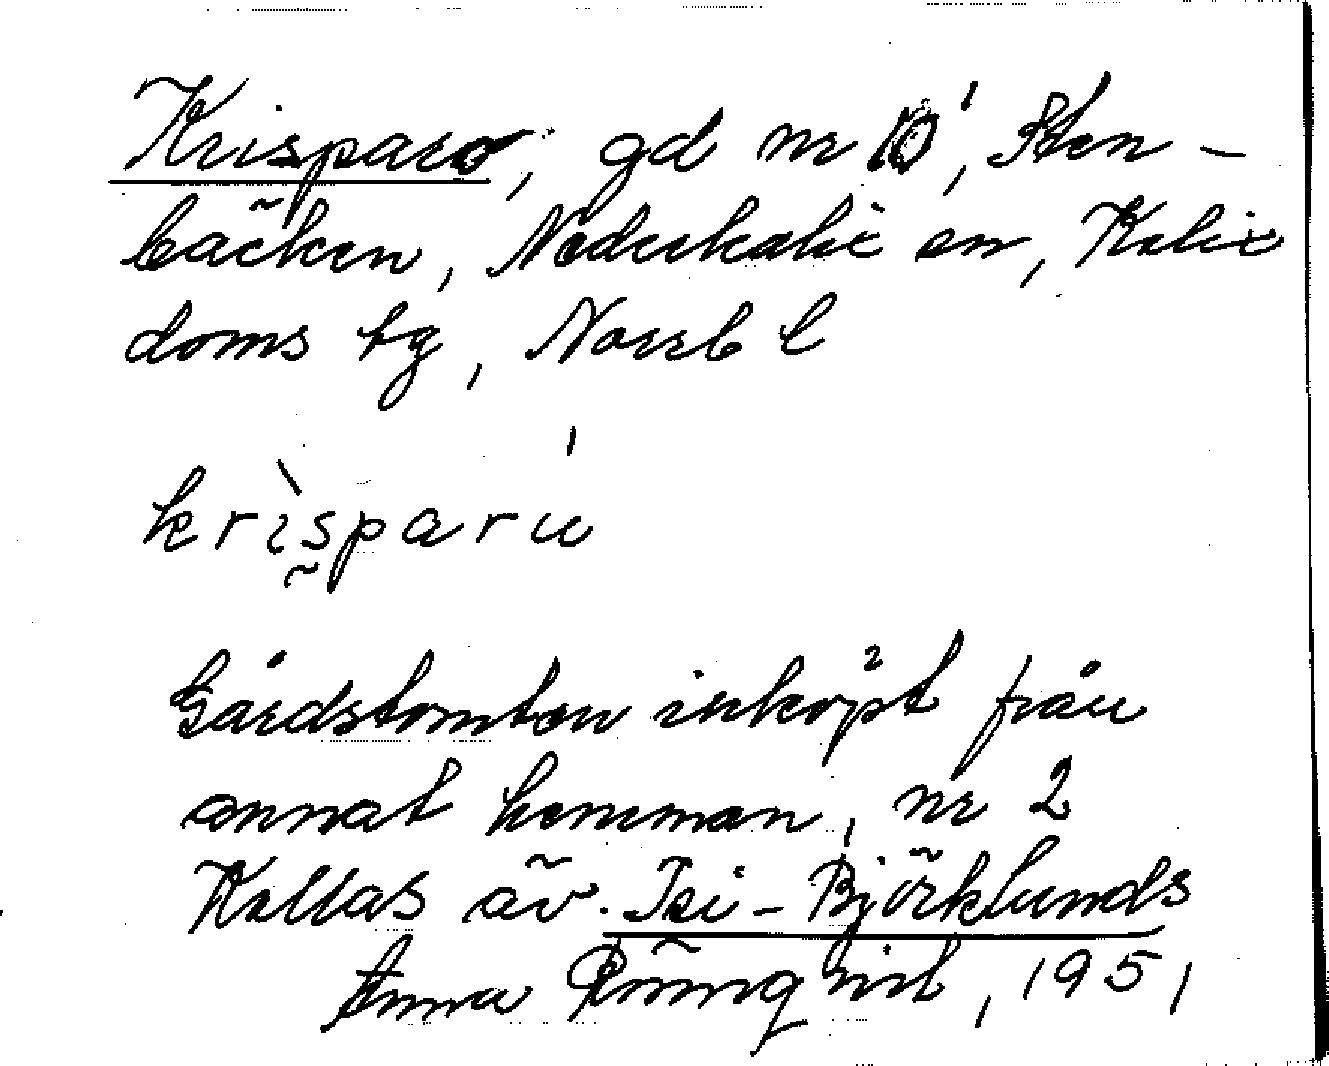 Krisparo, gd nr 10¹, Sten-
bäcken, Nederkalix sn, Kalix
doms tg, Norrb l
krìsparú
Gårdstomten inköpt från
annat hemman, nr 2
Kallas äv. Isi-Björklunds
Anna Rönnqvist, 1951